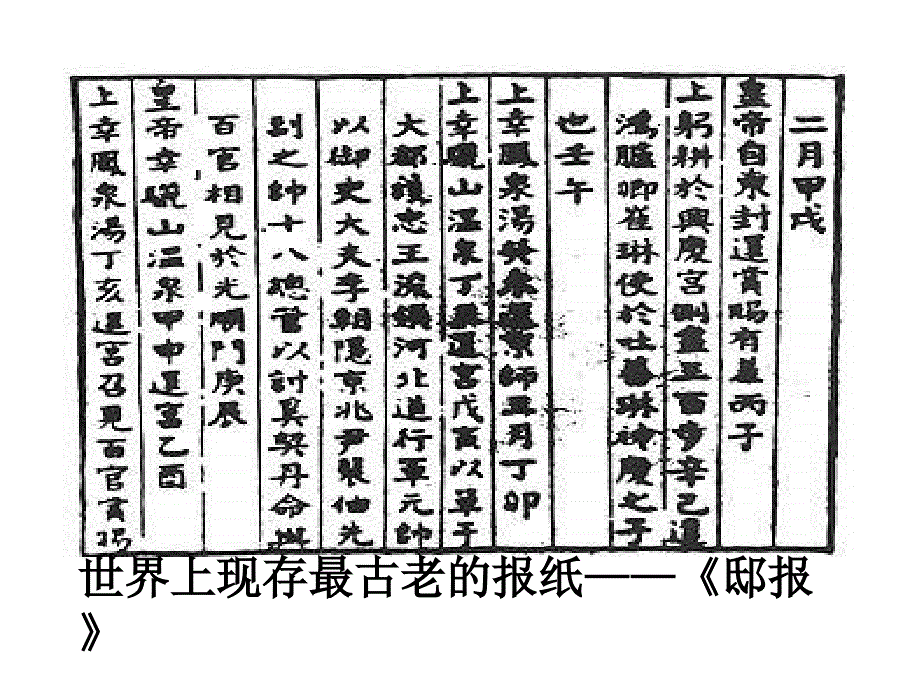 二月甲戌
皇帝自東封還賞賜有差丙子
上躬耕於興慶宮側盡三百步辛已還
鴻臚卿崔琳使於吐蕃琳神慶之子
也壬午
上幸鳳泉湯癸未還京師月丁卯
上幸驪山温泉丁還宮戊寅以單于
大都護忠王河北道行軍元帥
以御史大夫李朝隱京兆尹裴伷先
副之帥十八總管以討奚契丹命
百官相見於光順門庚辰
皇帝幸驪山温泉甲申還宮乙酉
上幸鳳泉湯丁亥還宮召見百官賞賜
世界上现存最古老的报纸——《邸报
》